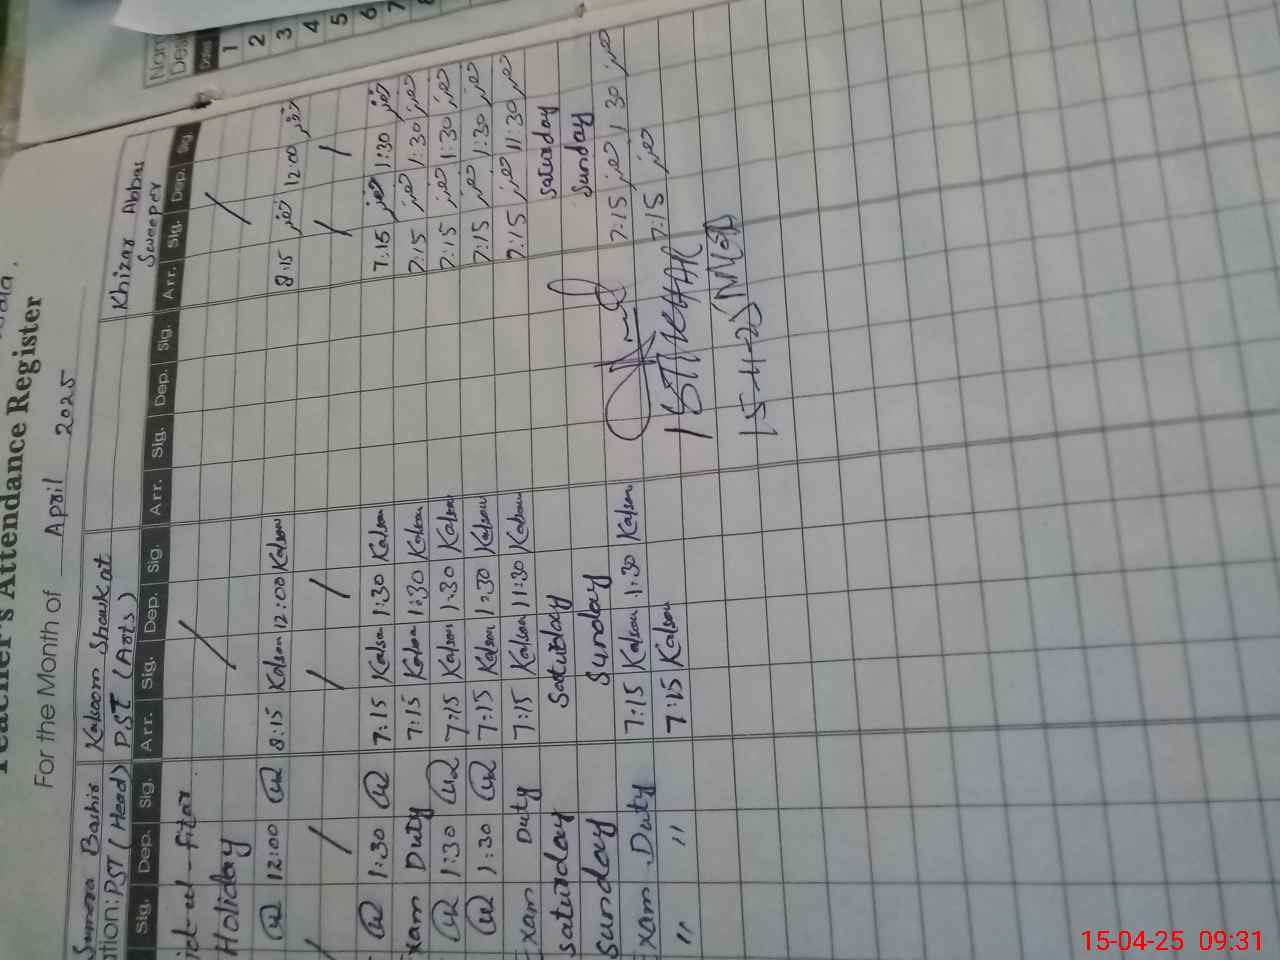 Teacher's Attendance Register
For the Month of April 2025
Sumera Bashir Kalsoom Shoukat Khizar Abbas
PST (Head) PST (Arts) Sweeper
Sig. Dep. Sig. Arr. Sig. Dep. Sig. Arr. Sig. Dep. Sig. Arr. Sig. Dep. Sig.
id-ul-fitar /
Holiday / /
12:00 8:15 Kalsom 12:00 Kalsom 8:15 خضر 12:00 خضر
/ / / / / /
1:30 7:15 Kalsom 1:30 Kalsom 7:15 خضر 1:30 خضر
xam Duty 7:15 Kalsom 1:30 Kalsom 7:15 خضر 1:30 خضر
1:30 7:15 Kalsom 1:30 Kalsom 7:15 خضر 1:30 خضر
1:30 7:15 Kalsom 1:30 Kalsom 7:15 خضر 1:30 خضر
Exam Duty 7:15 Kalsom 11:30 Kalsom 7:15 خضر 11:30 خضر
Saturday Saturday Saturday
Sunday Sunday Sunday
Exam Duty 7:15 Kalsom 1:30 Kalsom 7:15 خضر 1:30 خضر
" " 7:15 Kalsom 7:15 خضر
15-4-25
Dates
1
2
3
4
5
6
7
8
15-04-25 09:31